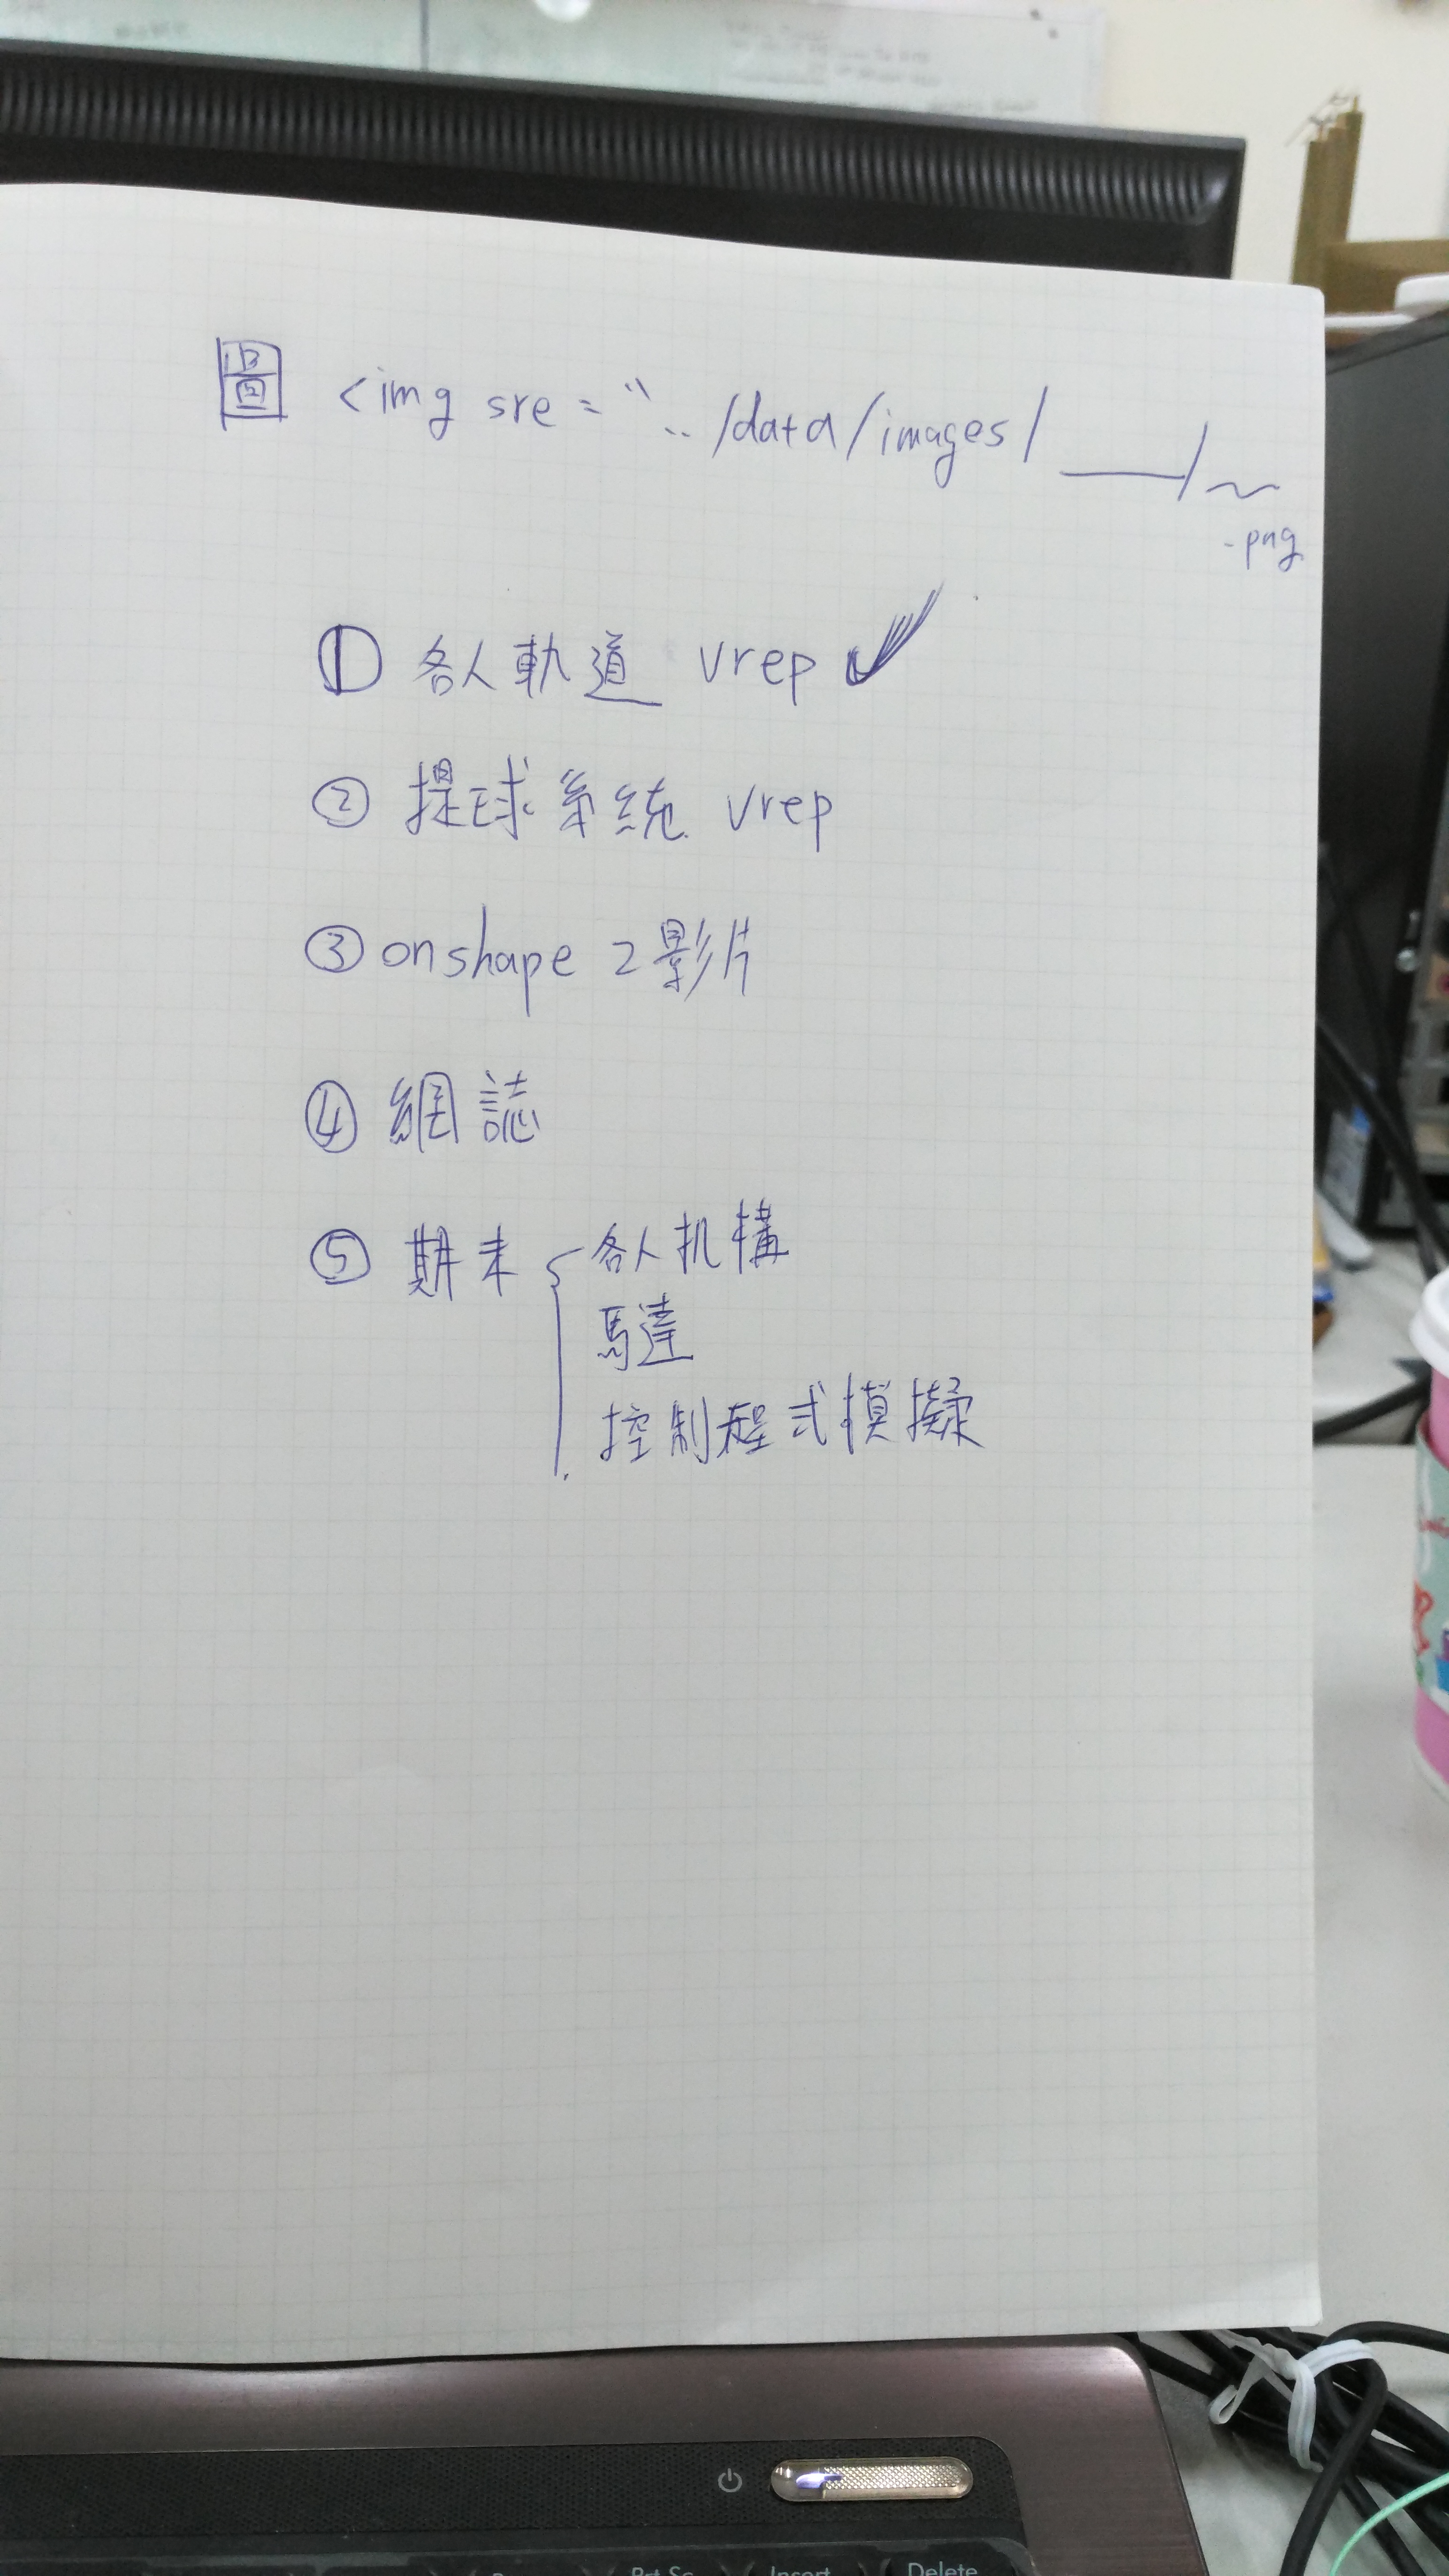 圖 <img sre = "../data/images/___/~
.png
① 各人軌道 vrep ✓
② 提球系統 vrep
③ onshape 2影片
④ 網誌
⑤ 期末 各人机構
馬達
控制程式模擬
Prt Sc Insert Delete